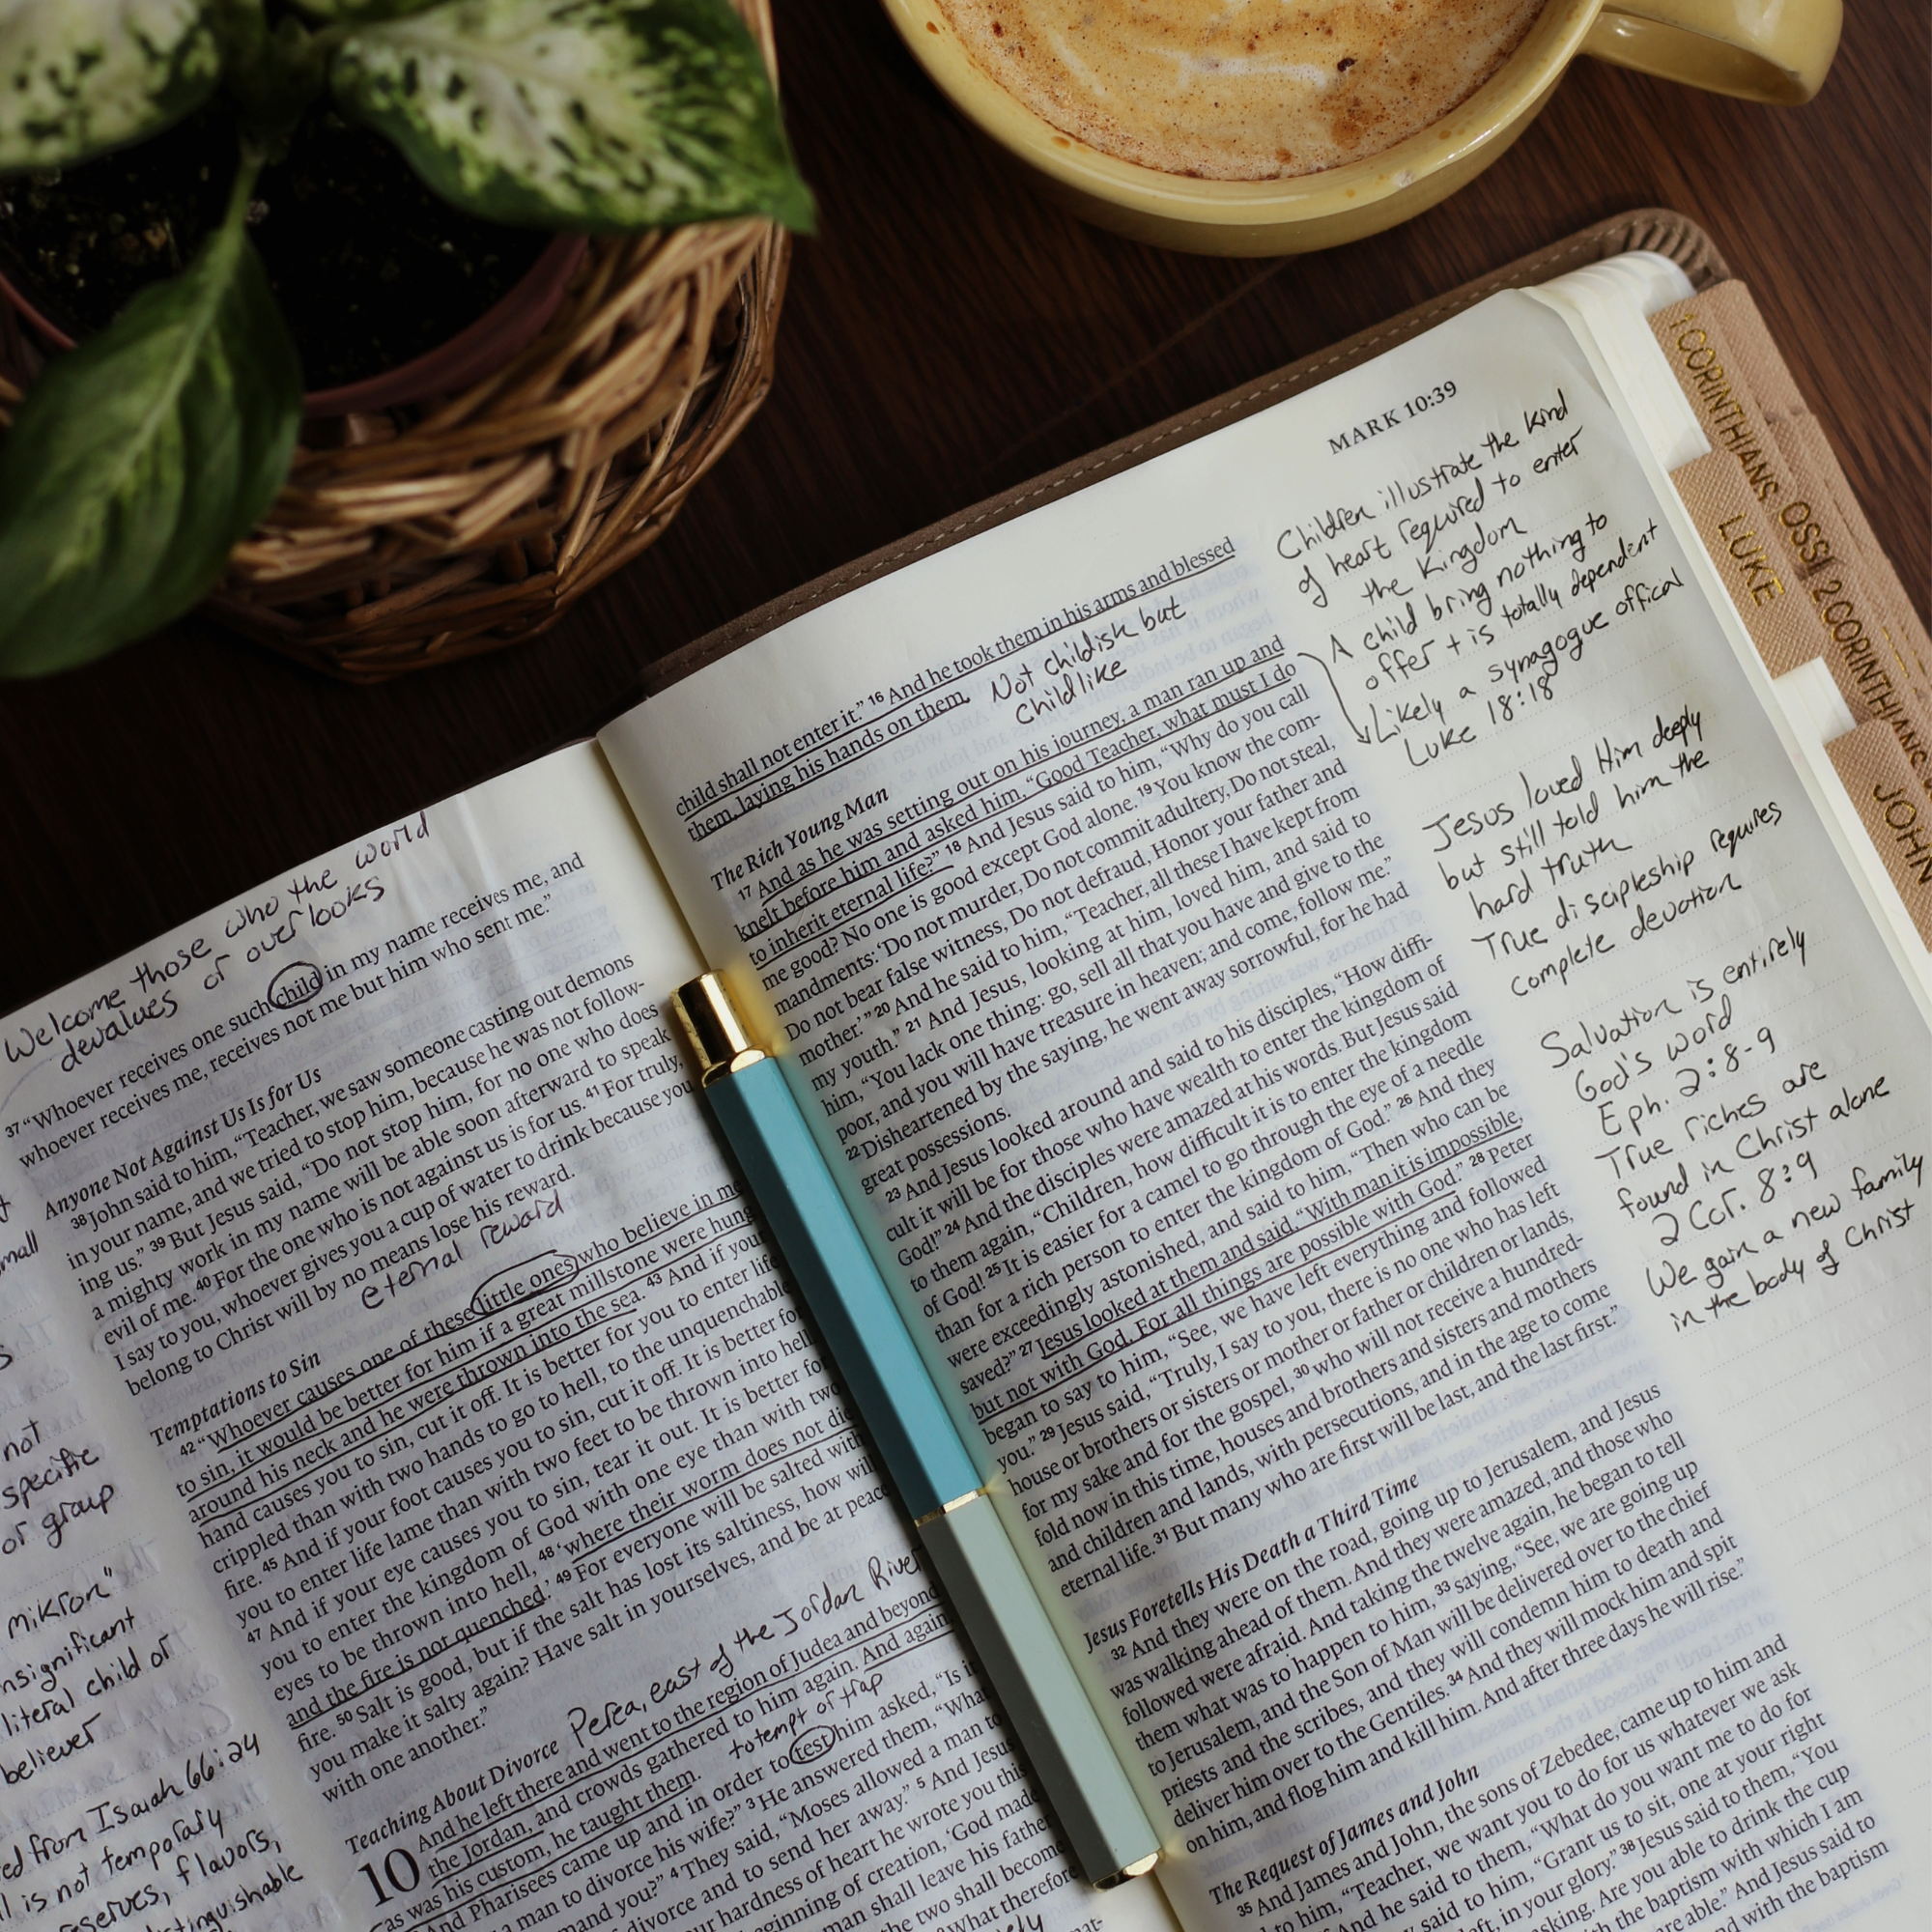 Welcome those who the world
devalues or overlooks
37 “Whoever receives one such child in my name receives me, and
whoever receives me, receives not me but him who sent me.”
Anyone Not Against Us Is for Us
38 John said to him, “Teacher, we saw someone casting out demons
in your name, and we tried to stop him, because he was not follow-
ing us.” 39 But Jesus said, “Do not stop him, for no one who does
a mighty work in my name will be able soon afterward to speak
evil of me. 40 For the one who is not against us is for us. 41 For truly,
I say to you, whoever gives you a cup of water to drink because you
belong to Christ will by no means lose his reward.
eternal reward
Temptations to Sin
42 “Whoever causes one of these little ones who believe in me
to sin, it would be better for him if a great millstone were hung
around his neck and he were thrown into the sea. 43 And if your
hand causes you to sin, cut it off. It is better for you to enter life
crippled than with two hands to go to hell, to the unquenchable
fire. 45 And if your foot causes you to sin, cut it off. It is better for
you to enter life lame than with two feet to be thrown into hell.
47 And if your eye causes you to sin, tear it out. It is better for
you to enter the kingdom of God with one eye than with two
eyes to be thrown into hell, 48 ‘where their worm does not die
and the fire is not quenched.’ 49 For everyone will be salted with
fire. 50 Salt is good, but if the salt has lost its saltiness, how will
you make it salty again? Have salt in yourselves, and be at peace
with one another.”
Teaching About Divorce
Perea, east of the Jordan River
10 And he left there and went to the region of Judea and beyond
the Jordan, and crowds gathered to him again. And again,
as was his custom, he taught them.
to tempt or trap
And Pharisees came up and in order to test him asked, “Is it
a man to divorce his wife?” 3 He answered them, “What
mand you?” 4 They said, “Moses allowed a man to
divorce and to send her away.” 5 And Jesus
hardness of heart he wrote you this
beginning of creation, ‘God made
man shall leave his father
the two shall become
What therefore
not
specific
or group
mikron”
literal child or
believer
from Isaiah 66:24
is not temporary
flavors,
MARK 10:39
child shall not enter it.” 16 And he took them in his arms and blessed
them, laying his hands on them.
Not childish but
childlike
The Rich Young Man
17 And as he was setting out on his journey, a man ran up and
knelt before him and asked him, “Good Teacher, what must I do
to inherit eternal life?” 18 And Jesus said to him, “Why do you call
me good? No one is good except God alone. 19 You know the com-
mandments: ‘Do not murder, Do not commit adultery, Do not steal,
Do not bear false witness, Do not defraud, Honor your father and
mother.’” 20 And he said to him, “Teacher, all these I have kept from
my youth.” 21 And Jesus, looking at him, loved him, and said to
him, “You lack one thing: go, sell all that you have and give to the
poor, and you will have treasure in heaven; and come, follow me.”
22 Disheartened by the saying, he went away sorrowful, for he had
great possessions.
23 And Jesus looked around and said to his disciples, “How diffi-
cult it will be for those who have wealth to enter the kingdom of
God!” 24 And the disciples were amazed at his words. But Jesus said
to them again, “Children, how difficult it is to enter the kingdom
of God! 25 It is easier for a camel to go through the eye of a needle
than for a rich person to enter the kingdom of God.” 26 And they
were exceedingly astonished, and said to him, “Then who can be
saved?” 27 Jesus looked at them and said, “With man it is impossible,
but not with God. For all things are possible with God.” 28 Peter
began to say to him, “See, we have left everything and followed
you.” 29 Jesus said, “Truly, I say to you, there is no one who has left
house or brothers or sisters or mother or father or children or lands,
for my sake and for the gospel, 30 who will not receive a hundred-
fold now in this time, houses and brothers and sisters and mothers
and children and lands, with persecutions, and in the age to come
eternal life. 31 But many who are first will be last, and the last first.”
Jesus Foretells His Death a Third Time
32 And they were on the road, going up to Jerusalem, and Jesus
was walking ahead of them. And they were amazed, and those who
followed were afraid. And taking the twelve again, he began to tell
them what was to happen to him, 33 saying, “See, we are going up
to Jerusalem, and the Son of Man will be delivered over to the chief
priests and the scribes, and they will condemn him to death and
deliver him over to the Gentiles. 34 And they will mock him and spit
on him, and flog him and kill him. And after three days he will rise.”
The Request of James and John
35 And James and John, the sons of Zebedee, came up to him and
to him, “Teacher, we want you to do for us whatever we ask
And he said to them, “What do you want me to do for
said to him, “Grant us to sit, one at your right
left, in your glory.” 38 Jesus said to them, “You
asking. Are you able to drink the cup
the baptism with which I am
are able.” And Jesus said to
and with the baptism
Children illustrate the kind
of heart required to enter
the Kingdom
A child bring nothing to
offer + is totally dependent
Likely a synagogue offical
Luke 18:18
Jesus loved Him deeply
but still told him the
hard truth
True discipleship requires
complete devotion
Salvation is entirely
God's word
Eph. 2:8-9
True riches are
found in Christ alone
2 Cor. 8:9
We gain a new family
in the body of Christ
1 CORINTHIANS
LUKE
OSSI
2 CORINTHIANS
JOHN